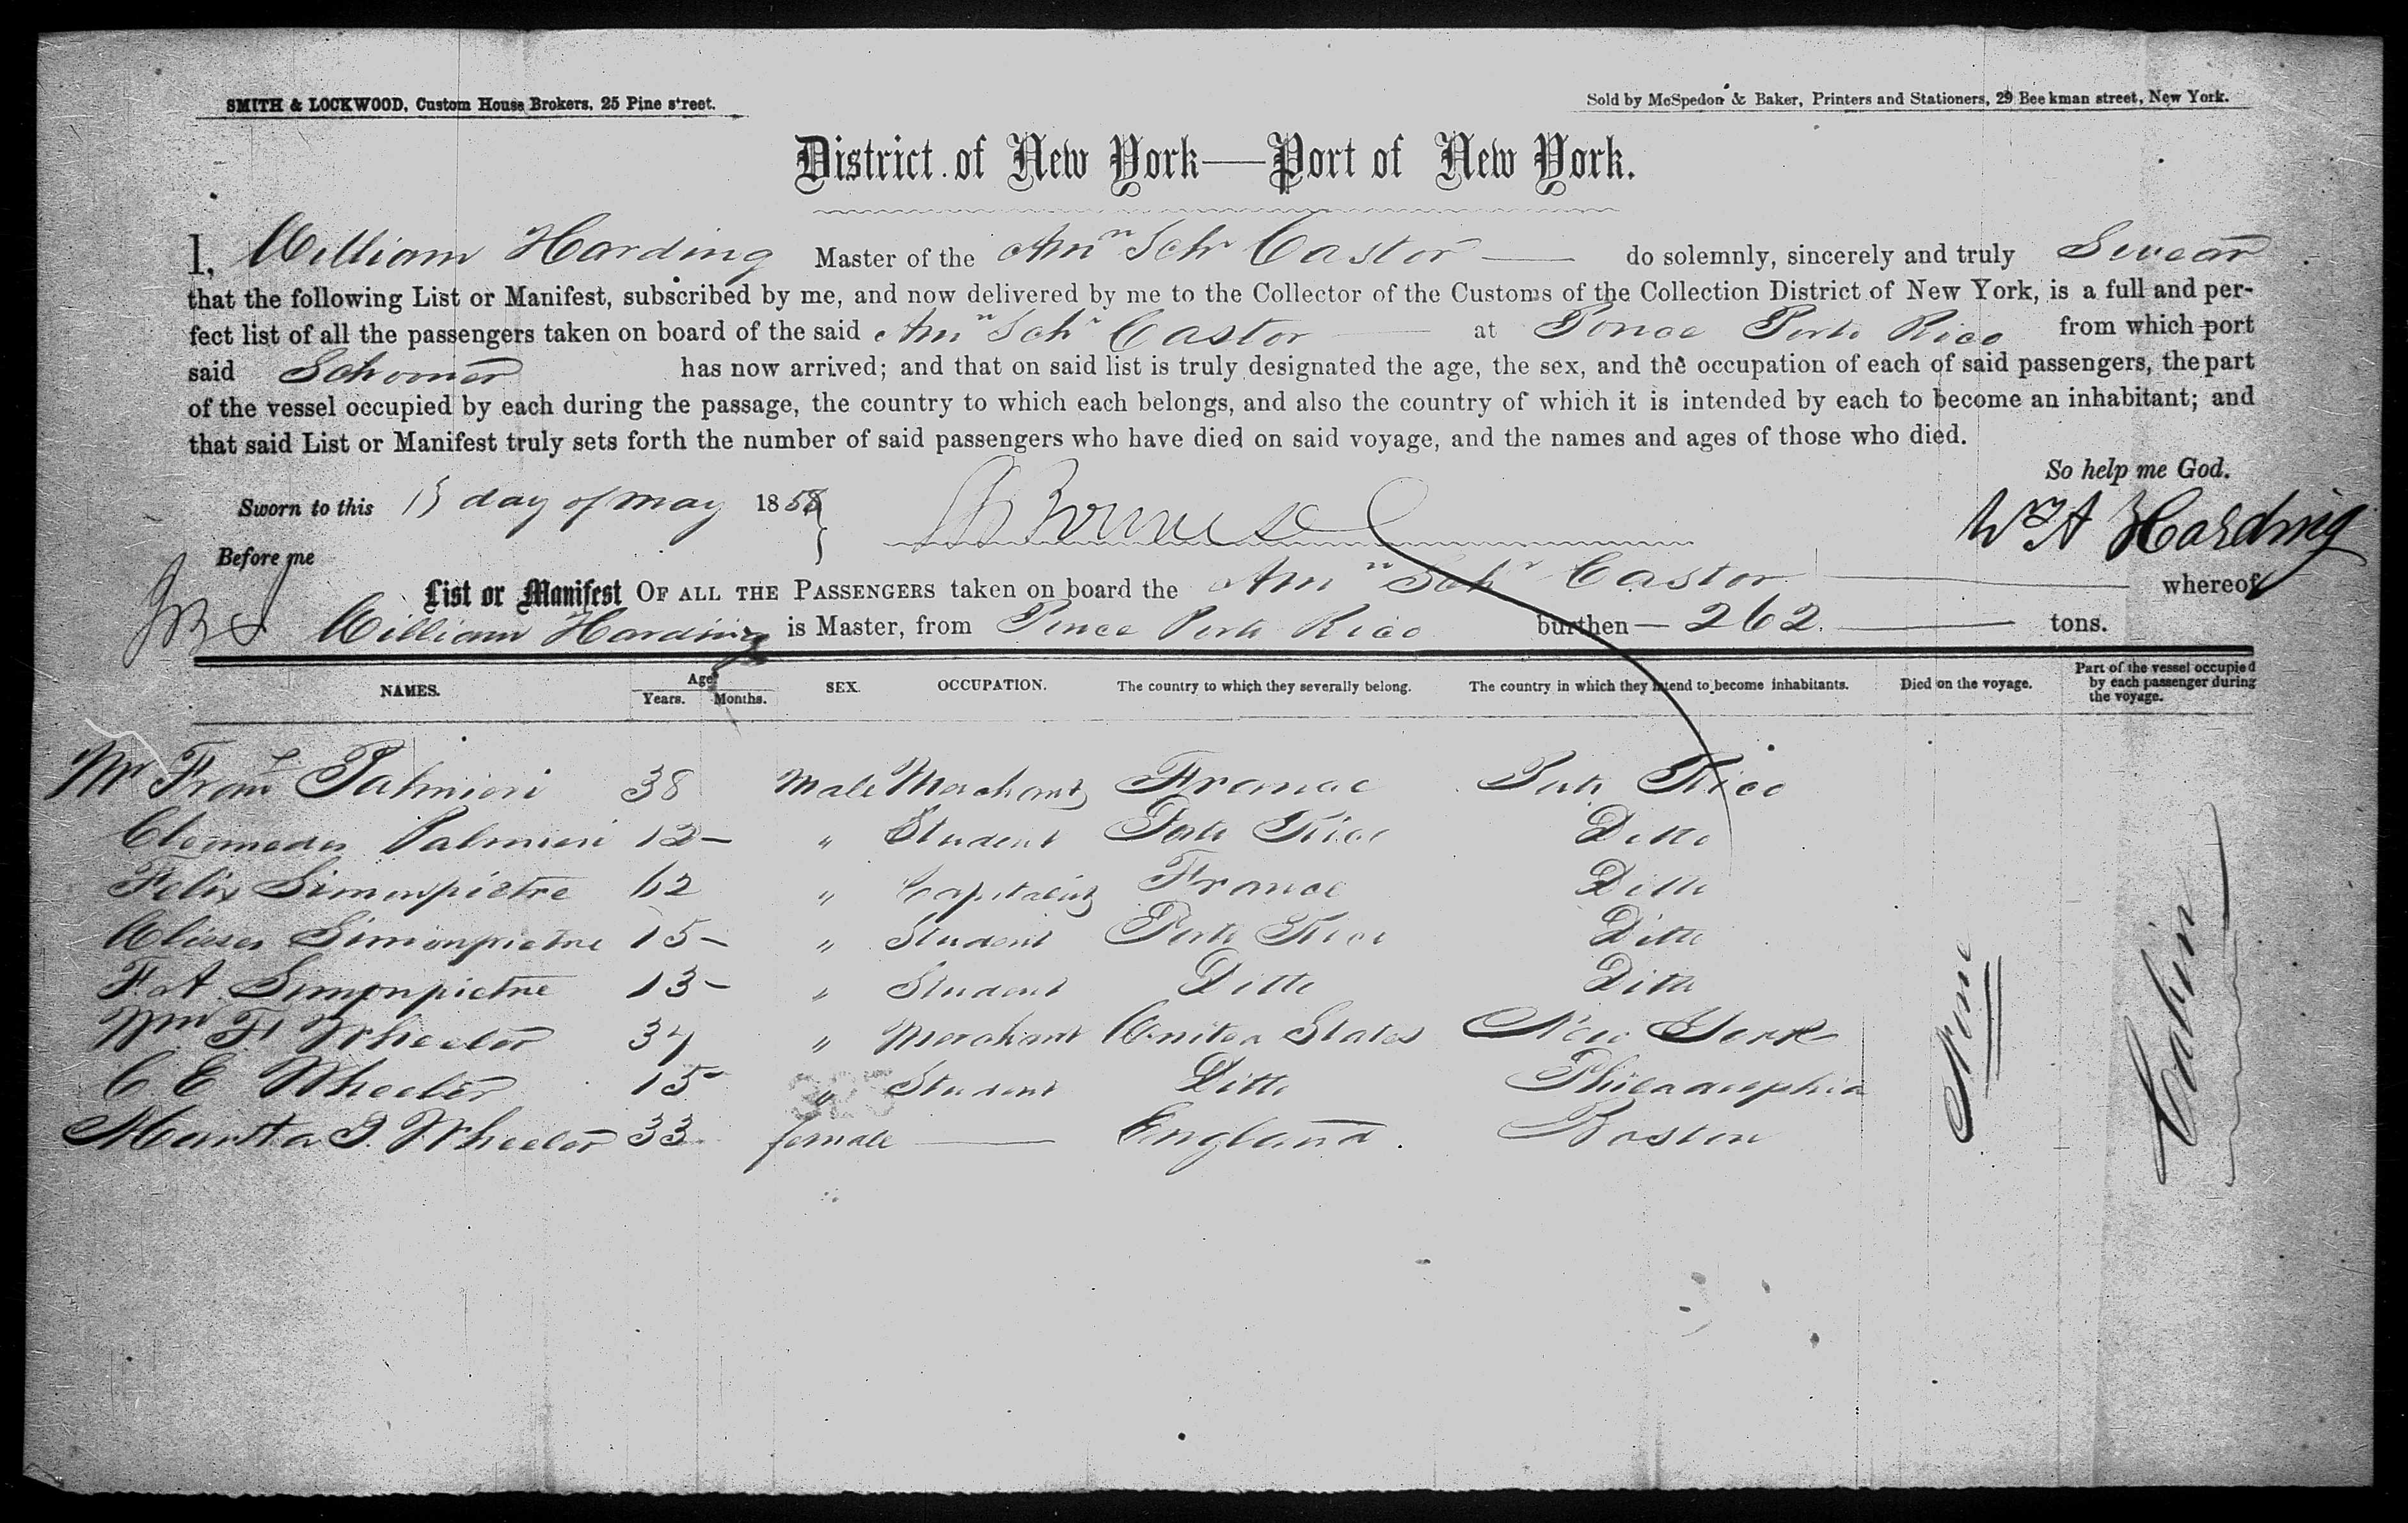 SMITH & LOCKWOOD, Custom House Brokers, 25 Pine street.
Sold by McSpedon & Baker, Printers and Stationers, 29 Beekman street, New York.
District of New York—Port of New York.
I, William Harding Master of the Amn Schr Castor do solemnly, sincerely and truly Swear
that the following List or Manifest, subscribed by me, and now delivered by me to the Collector of the Customs of the Collection District of New York, is a full and per-
fect list of all the passengers taken on board of the said Amn Schr Castor at Ponce Porto Rico from which port
said Schooner has now arrived; and that on said list is truly designated the age, the sex, and the occupation of each of said passengers, the part
of the vessel occupied by each during the passage, the country to which each belongs, and also the country of which it is intended by each to become an inhabitant; and
that said List or Manifest truly sets forth the number of said passengers who have died on said voyage, and the names and ages of those who died.
So help me God.
Sworn to this day of May 1858
Wm A Harding
Before me
List or Manifest OF ALL THE PASSENGERS taken on board the Amn Schr Castor whereof
William Harding is Master, from Ponce Porto Rico burthen — 262 tons.
NAMES. Age Years. Months. SEX. OCCUPATION. The country to which they severally belong. The country in which they intend to become inhabitants. Died on the voyage. Part of the vessel occupied by each passenger during the voyage.
Mr Palmieri 38 Male Merchant France Porto Rico
Palmieri 12 – " Student Porto Rico Ditto
Felix Simonpietre 62 " Capitalist France Ditto
Ulisses Simonpietre 15 – " Student Porto Rico Ditto
F. A. Simonpietre 13 – " Student Ditto Ditto
Wm F Wheeler 34 " Merchant United States New York
C. E. Wheeler 15 " Student Ditto Philadelphia
J. Wheeler 33 female — England. Boston
None
Cabin
325